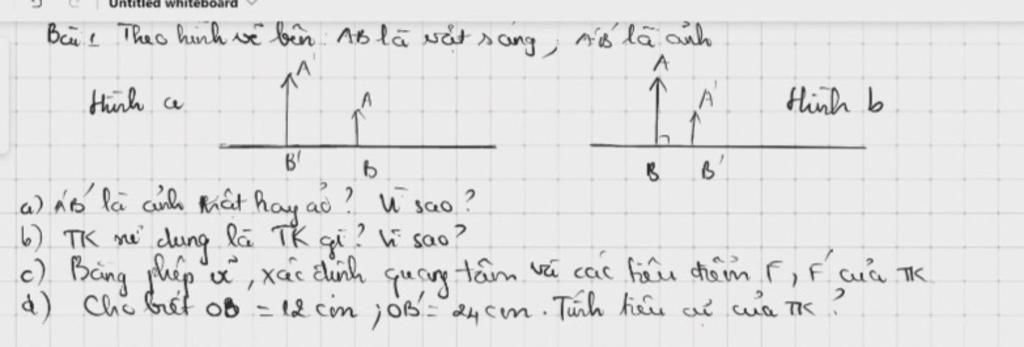 Untitled whiteboard
Bài 1 Theo hình vẽ bên: AB là vật sáng, A'B' là ảnh
Hình a
A'
A
B'
B
A
A'
B
B'
Hình b
a) A'B' là ảnh thật hay ảo? Vì sao?
b) TK sử dụng là TK gì? Vì sao?
c) Bằng phép vẽ, xác định quang tâm và các tiêu điểm F, F' của TK
d) Cho biết OB = 12 cm; OB' = 24 cm. Tính tiêu cự của TK?